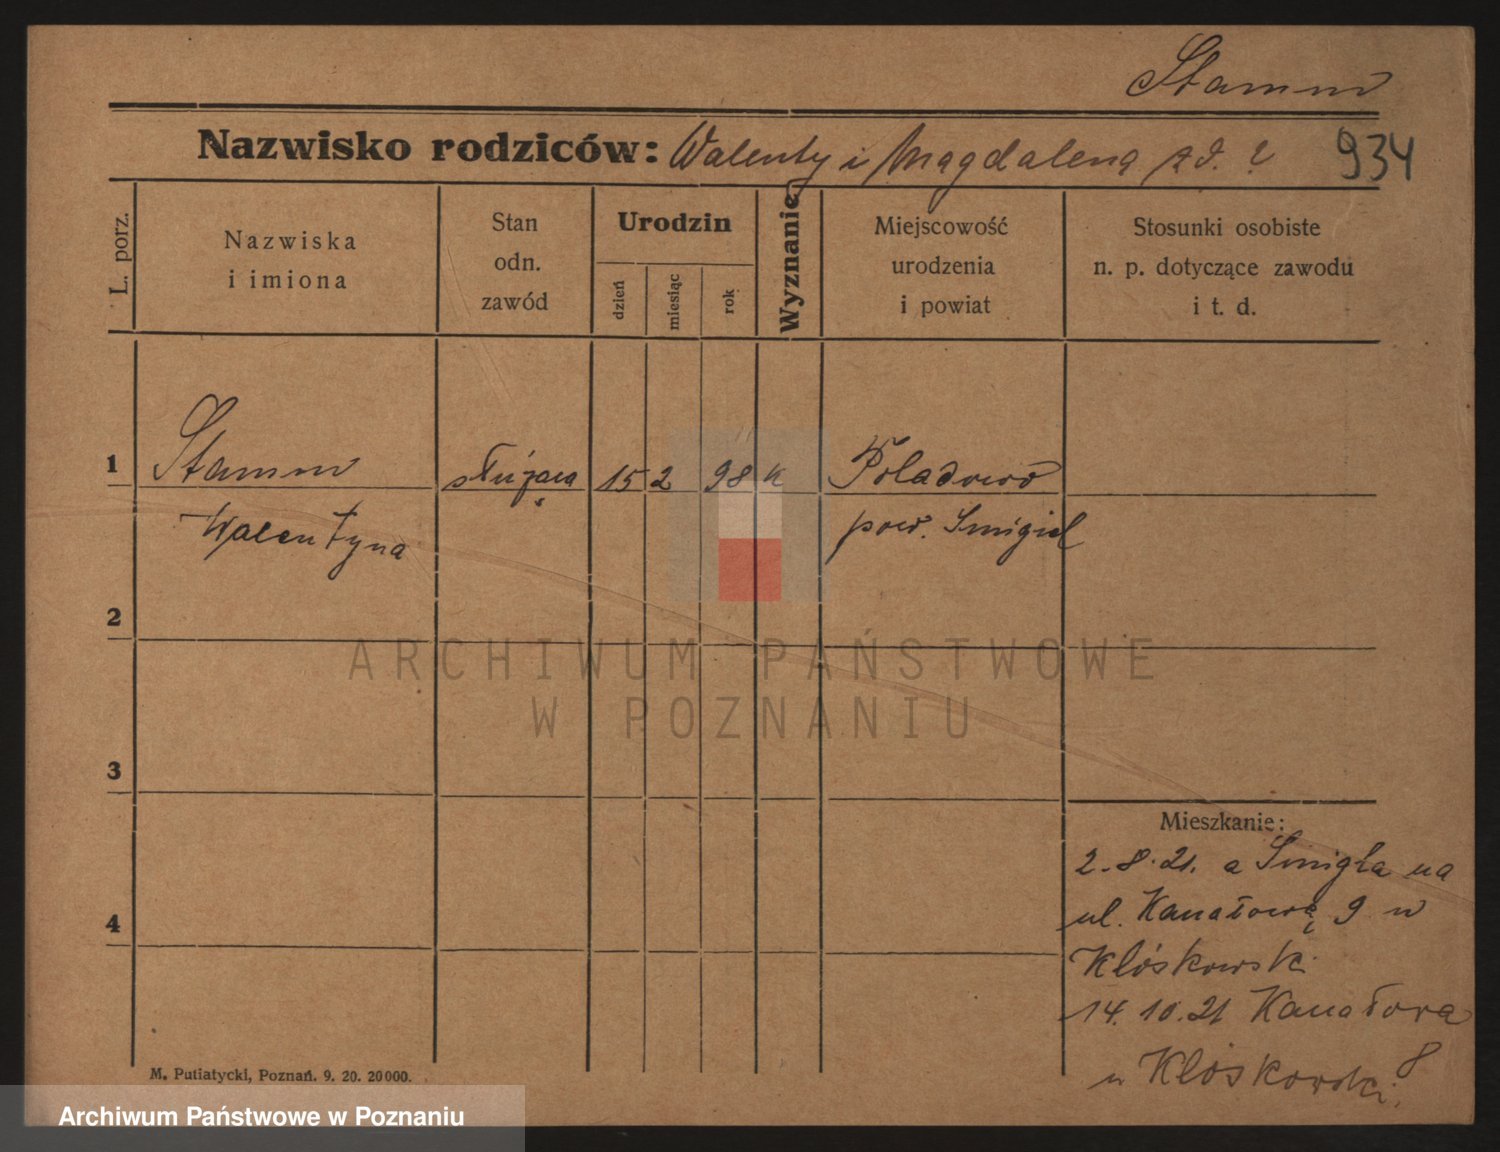 Stamm
Nazwisko rodziców: Walenty i Magdalena zd. ? 934
L. porz.
Nazwiska
i imiona
Stan
odn.
zawód
Urodzin
dzień
miesiąc
rok
Wyznanie
Miejscowość
urodzenia
i powiat
Stosunki osobiste
n. p. dotyczące zawodu
i t. d.
1 Stamm służąca 15 2 98 k Poladowo
Walentyna pow. Śmigiel
2
ARCHIWUM PAŃSTWOWE
W POZNANIU
3
Mieszkanie:
2.8.21. a Śmigla na
ul. Kanałową 9 u
Klóskowski
14.10.21 Kanałowa
8
u Klóskowski.
4
M. Putiatycki, Poznań. 9. 20. 20000.
Archiwum Państwowe w Poznaniu